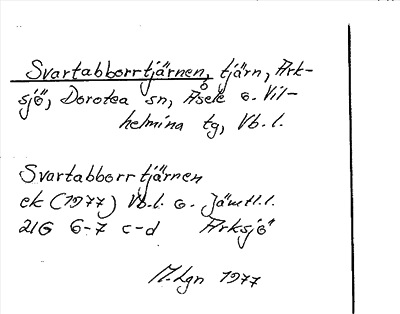 Svartabborrtjärnen, tjärn, Ark-
sjö, Dorotea sn, Åsele o. Vil-
helmina tg, Vb.l.
Svartabborrtjärnen
ek (1977) Vb.l. o. Jämtl.l.
21G 6-7 c-d Arksjö
M.Lgn 1977